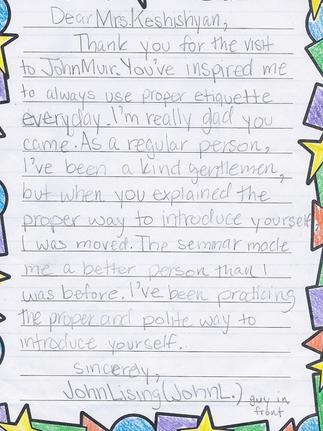 Dear Mrs. Keshishyan,
Thank you for the visit
to John Muir. You've inspired me
to always use proper etiquette
everyday. I'm really glad you
came. As a regular person,
I've been a kind gentlemen,
but when you explained the
proper way to introduce yourself
I was moved. The seminar made
me a better person than I
was before. I've been practicing
the proper and polite way to
introduce yourself.
sincerely,
John Lising (John L.) guy in
front